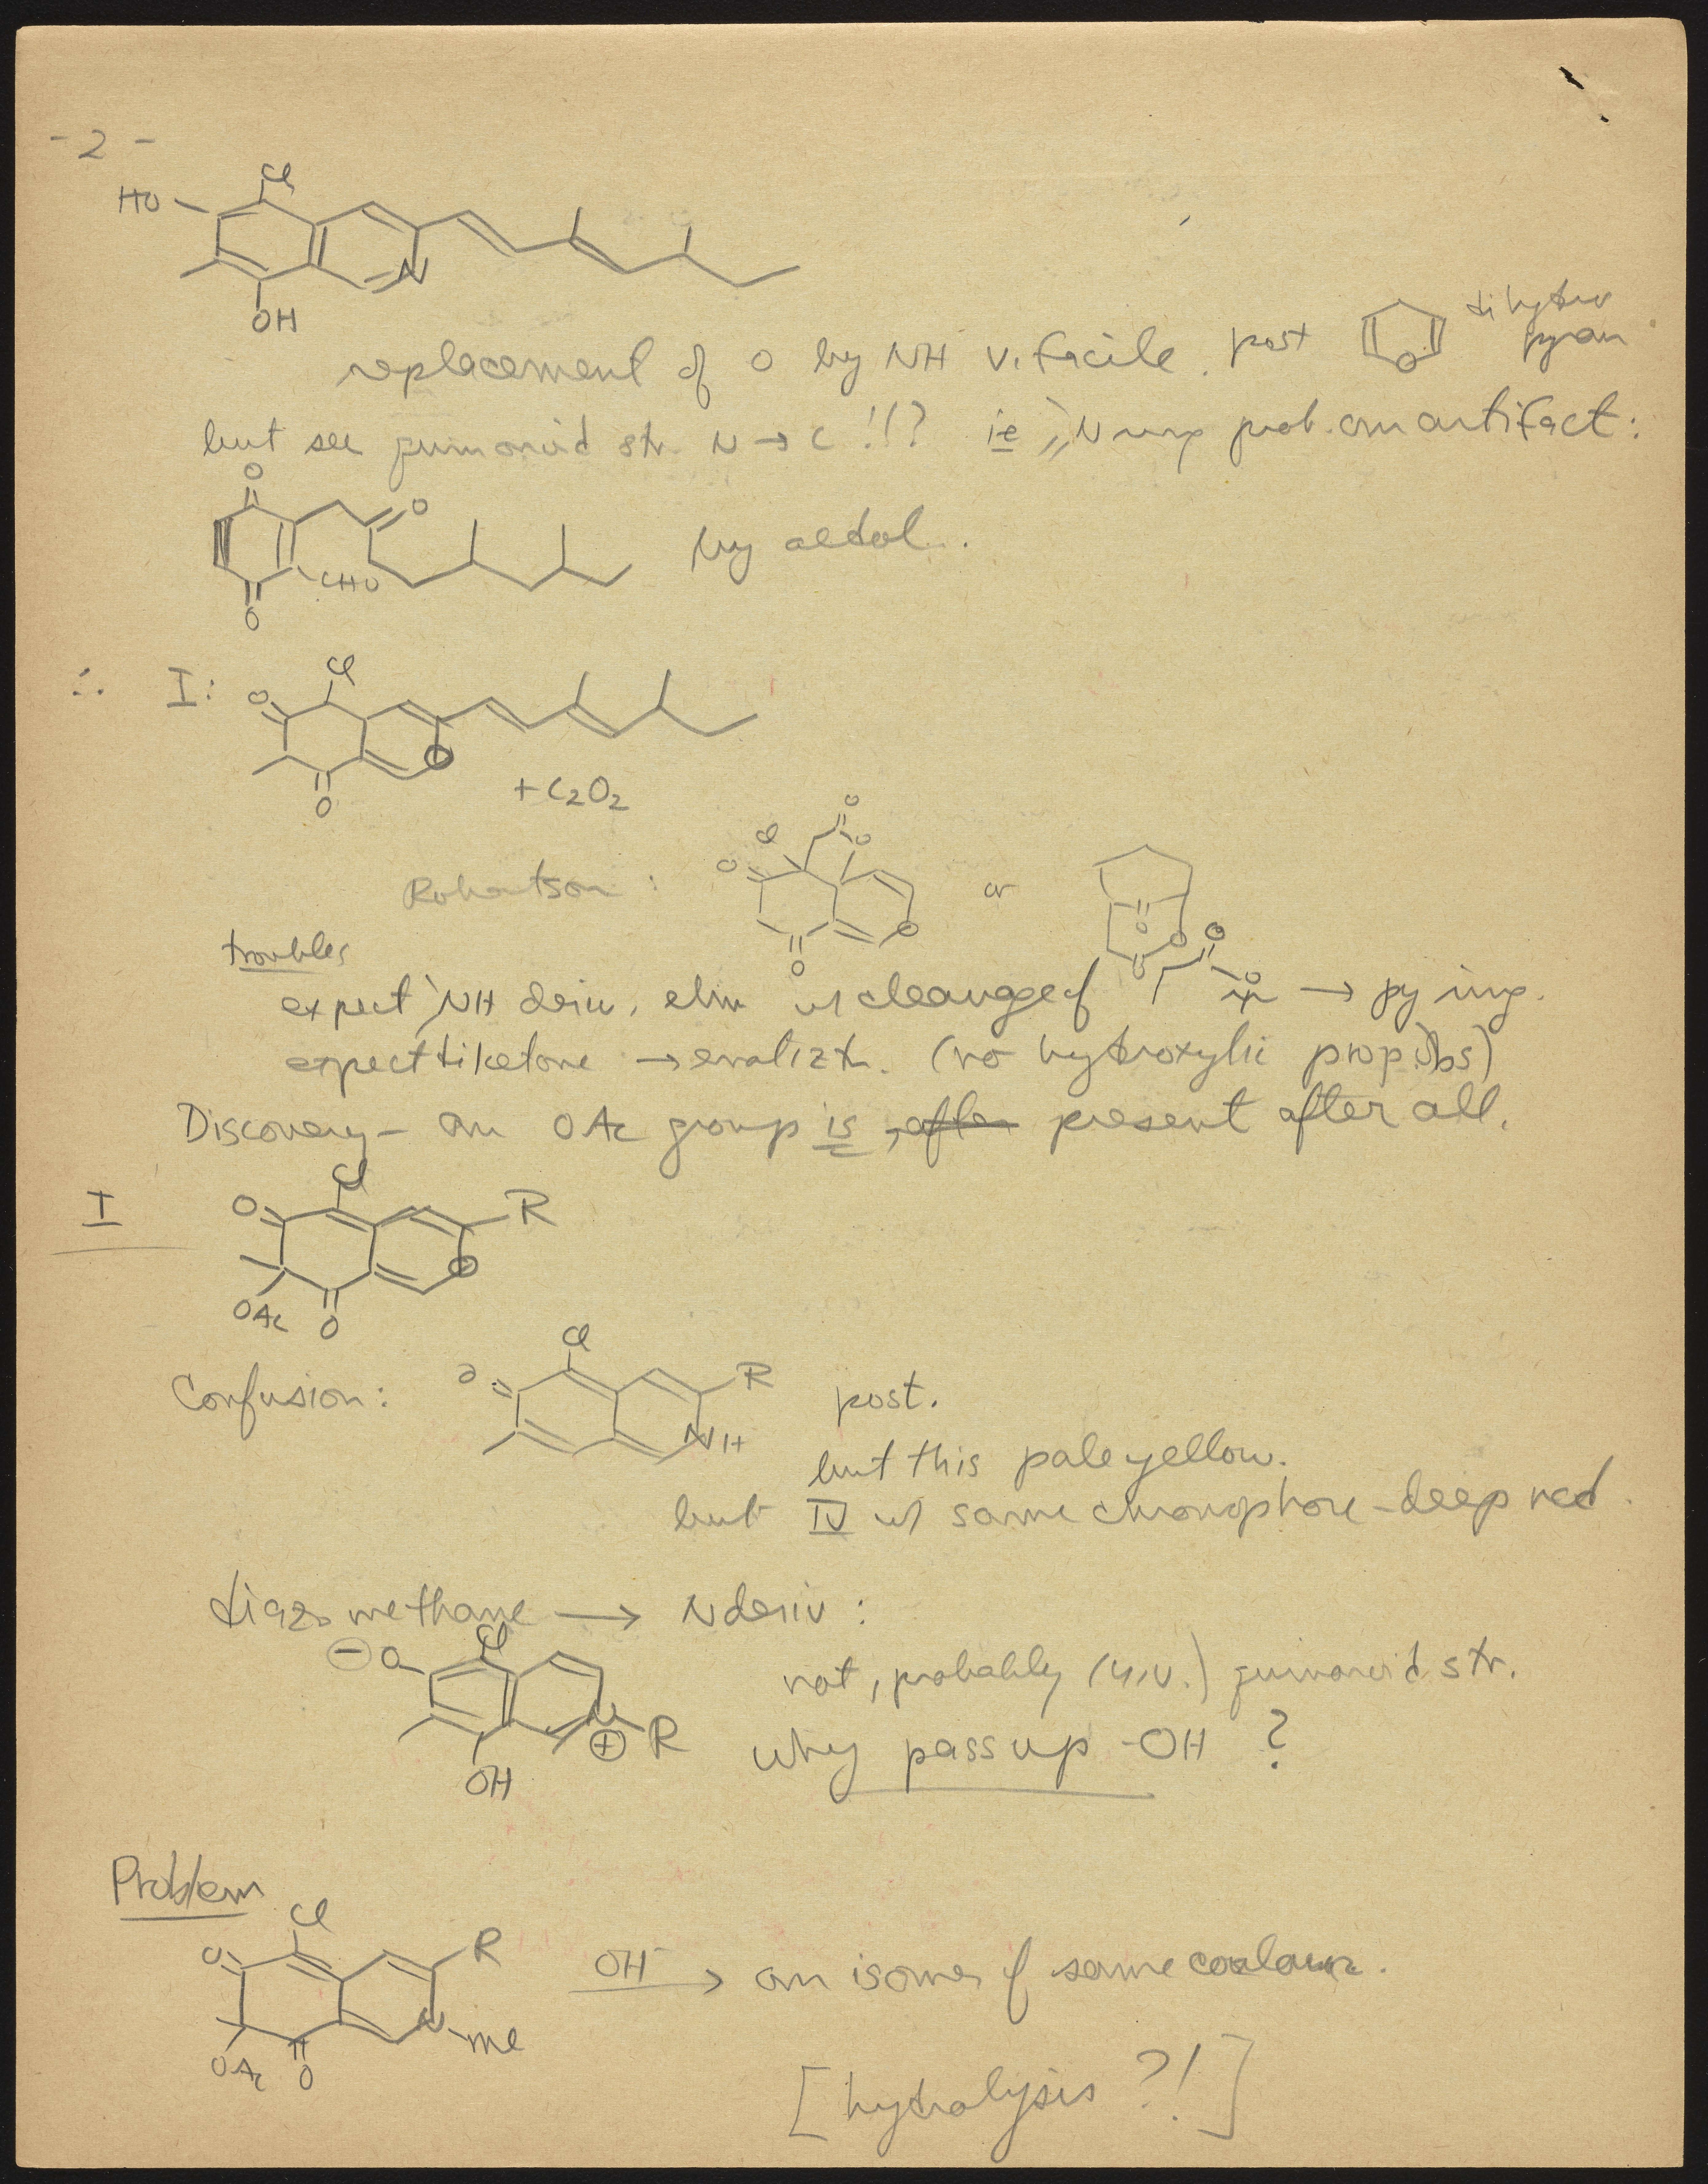 - 2 -
Cl
HO
N
OH
replacement of O by NH v. facile. post O dihydro pyran
but see quinonoid str. N → C !!? ie N ring prob. an artifact:
O
O
CHO
O
by aldol.
∴ I:
Cl
O
O
O
+ C2O2
Robertson:
O
Cl
O
O
O
O
or
O
O
O
O
troubles
expect NH deriv, elim w cleavage of → py ring.
expect diketone → enolizn. (no hydroxylic prop. obs)
Discovery - an OAc group is, after present after all.
I
Cl
O
R
O
OAc
O
Confusion:
Cl
O
R
NH
post.
but this pale yellow.
but IV w/ same chromophore - deep red.
diazomethane → N deriv:
Cl
⊖ O
N
⊕ R
OH
not, probably (u.v.) quinonoid str.
why pass up -OH ?
Problem
Cl
O
R
N-Me
OAc
O
OH- → an isomer of same colour.
[hydrolysis ?!]